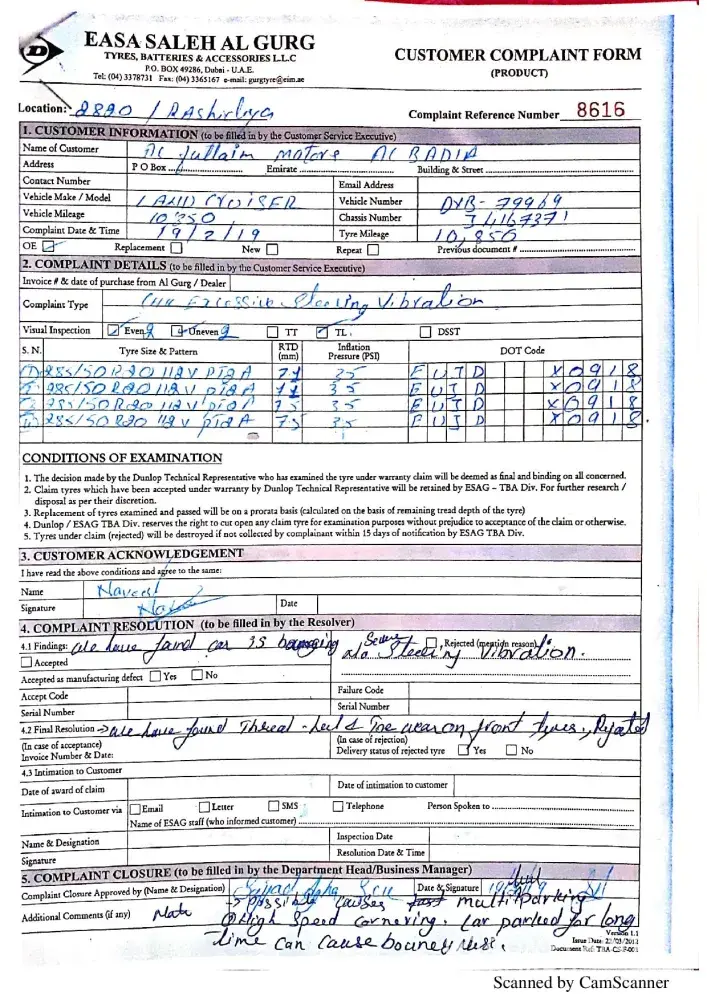 EASA SALEH AL GURG
TYRES, BATTERIES & ACCESSORIES L.L.C
P.O. BOX 49286, Dubai - U.A.E.
Tel: (04) 3378731 Fax: (04) 3365167 e-mail: gurgtyre@eim.ae
CUSTOMER COMPLAINT FORM
(PRODUCT)
Location: 2820 / RAshidiya
Complaint Reference Number 8616
1. CUSTOMER INFORMATION (to be filled in by the Customer Service Executive)
Name of Customer AL Futtaim motors AL BADIA
Address P O Box Emirate Building & Street
Contact Number Email Address
Vehicle Make / Model LAND CRUISER Vehicle Number DXB- 79969
Vehicle Mileage Chassis Number J4167371
Complaint Date & Time 19/2/19 Tyre Mileage 10,850
OE Replacement New Repeat Previous document #
2. COMPLAINT DETAILS (to be filled in by the Customer Service Executive)
Invoice # & date of purchase from Al Gurg / Dealer
Complaint Type Excessive Steering Vibration
Visual Inspection Even Uneven TT TL DSST
S. N. Tyre Size & Pattern RTD (mm) Inflation Pressure (PSI) DOT Code
285/50 R20 112 V PT2A 7.1 35 E U J D X 0 9 1 8
285/50 R20 112 V PT2A 35 E U J D X 0 9 1 8
285/50 R20 112 V PT2A 7.5 35 E U J D X 0 9 1 8
285/50 R20 112 V PT2A 7.5 35 E U J D X 0 9 1 8
CONDITIONS OF EXAMINATION
1. The decision made by the Dunlop Technical Representative who has examined the tyre under warranty claim will be deemed as final and binding on all concerned.
2. Claim tyres which have been accepted under warranty by Dunlop Technical Representative will be retained by ESAG - TBA Div. For further research /
disposal as per their discretion.
3. Replacement of tyres examined and passed will be on a prorata basis (calculated on the basis of remaining tread depth of the tyre)
4. Dunlop / ESAG TBA Div. reserves the right to cut open any claim tyre for examination purposes without prejudice to acceptance of the claim or otherwise.
5. Tyres under claim (rejected) will be destroyed if not collected by complainant within 15 days of notification by ESAG TBA Div.
3. CUSTOMER ACKNOWLEDGEMENT
I have read the above conditions and agree to the same:
Name Naveed
Signature Date
4. COMPLAINT RESOLUTION (to be filled in by the Resolver)
4.1 Findings: we have found car is bouncing Rejected (mention reason)
Accepted Steering Vibration.
Accepted as manufacturing defect Yes No
Accept Code Failure Code
Serial Number Serial Number
4.2 Final Resolution → we have found Thread - heel & Toe wear on front tyres, Rejected
(In case of acceptance) (In case of rejection)
Invoice Number & Date: Delivery status of rejected tyre Yes No
4.3 Intimation to Customer
Date of award of claim Date of intimation to customer
Intimation to Customer via Email Letter SMS Telephone Person Spoken to
Name of ESAG staff (who informed customer)
Name & Designation Inspection Date
Signature Resolution Date & Time
5. COMPLAINT CLOSURE (to be filled in by the Department Head/Business Manager)
Complaint Closure Approved by (Name & Designation) Date & Signature
Additional Comments (if any) Note → possible causes multi parking
High Speed cornering. Car parked for long
time can cause bouncyness.
Version 1.1
Issue Date: 22/05/2012
Document Ref: TBA-CS-F-001
Scanned by CamScanner